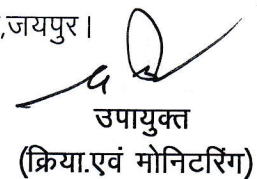 ,जयपुर।
उपायुक्त
(क्रिया.एवं मोनिटरिंग)